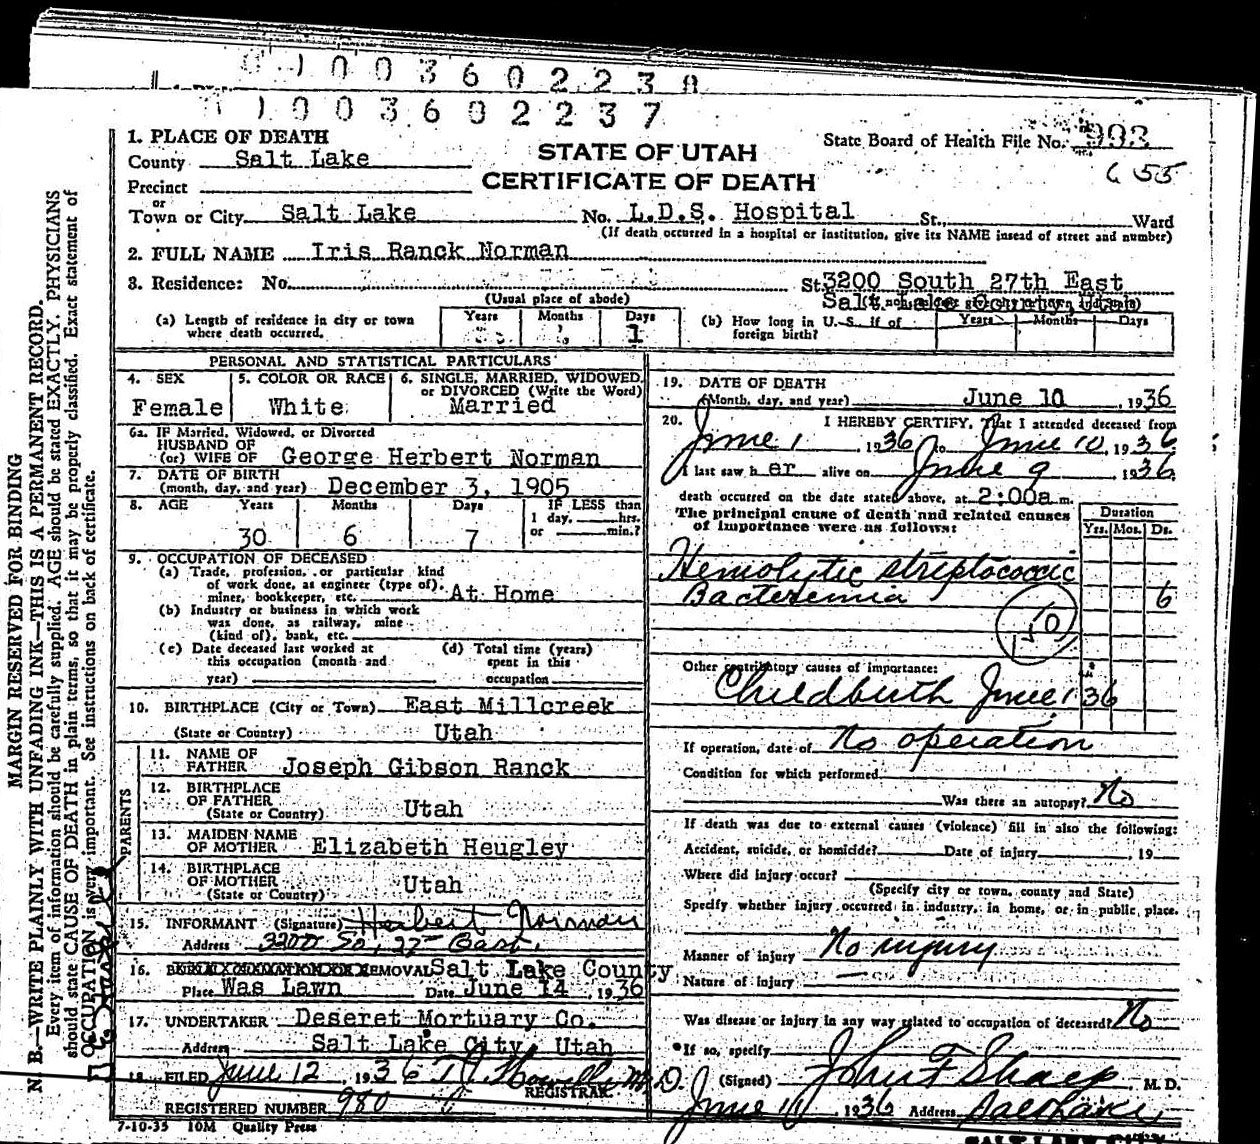 0 1 0 0 3 6 0 2 2 3 8
0 1 0 0 3 6 0 2 2 3 7
1. PLACE OF DEATH
County Salt Lake
Precinct
or
Town or City Salt Lake No. L.D.S. Hospital St., Ward
(If death occurred in a hospital or institution, give its NAME insead of street and number)
STATE OF UTAH
CERTIFICATE OF DEATH
State Board of Health File No. 993
655
2. FULL NAME Iris Ranck Norman
3. Residence: No. St. 3200 South 27th East
(Usual place of abode) Salt Lake County, Utah
(a) Length of residence in city or town where death occurred. Years Months Days 1
(b) How long in U. S. if of foreign birth? Years Months Days
PERSONAL AND STATISTICAL PARTICULARS
4. SEX Female
5. COLOR OR RACE White
6. SINGLE, MARRIED, WIDOWED, or DIVORCED (Write the Word) Married
6a. IF Married, Widowed, or Divorced
HUSBAND OF
(or) WIFE OF George Herbert Norman
7. DATE OF BIRTH
(month, day, and year) December 3, 1905
8. AGE Years 30 Months 6 Days 7
IF LESS than
1 day, hrs.
or min.?
9. OCCUPATION OF DECEASED
(a) Trade, profession, or particular kind
of work done, as engineer (type of),
miner, bookkeeper, etc. At Home
(b) Industry or business in which work
was done, as railway, mine
(kind of), bank, etc.
(c) Date deceased last worked at
this occupation (month and
year)
(d) Total time (years)
spent in this
occupation
10. BIRTHPLACE (City or Town) East Millcreek
(State or Country) Utah
PARENTS
11. NAME OF
FATHER Joseph Gibson Ranck
12. BIRTHPLACE
OF FATHER
(State or Country) Utah
13. MAIDEN NAME
OF MOTHER Elizabeth Heugley
14. BIRTHPLACE
OF MOTHER
(State or Country) Utah
15. INFORMANT (Signature) Herbert Norman
Address 3200 So, 27th East.
16. REMOVAL Salt Lake County
Place Was Lawn Date June 14, 1936
17. UNDERTAKER Deseret Mortuary Co.
Address Salt Lake City, Utah
18. FILED June 12 1936 M.D.
REGISTRAR.
REGISTERED NUMBER 980
7-10-35 10M Quality Press
19. DATE OF DEATH
(Month, day, and year) June 10, 1936
20. I HEREBY CERTIFY, That I attended deceased from
June 1, 1936 to June 10, 1936
I last saw her alive on June 9 1936
death occurred on the date stated above, at 2:00a m.
The principal cause of death and related causes
of importance were as follows:
Duration
Yrs. Mos. Ds.
Hemolytic streptococcic
Bacteremia 6
Other contributory causes of importance:
Childbirth June 1 36
If operation, date of No operation
Condition for which performed
Was there an autopsy? No
If death was due to external causes (violence) fill in also the following:
Accident, suicide, or homicide? Date of injury , 19
Where did injury occur?
(Specify city or town, county and State)
Specify whether injury occurred in industry, in home, or in public place.
Manner of injury No injury
Nature of injury
Was disease or injury in any way related to occupation of deceased? No
If so, specify
(Signed) John F Sharp M. D.
June 11 1936 Address Salt Lake
SALT LAKE CITY
MARGIN RESERVED FOR BINDING
N. B.—WRITE PLAINLY WITH UNFADING INK—THIS IS A PERMANENT RECORD.
Every item of information should be carefully supplied. AGE should be stated EXACTLY. PHYSICIANS
should state CAUSE OF DEATH in plain terms, so that it may be properly classified. Exact statement of
OCCUPATION is very important. See instructions on back of certificate.